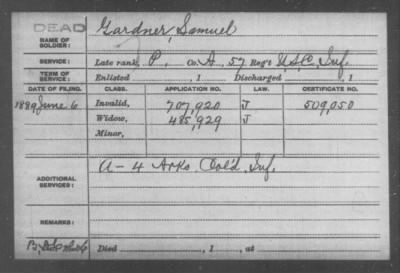 DEAD
NAME OF SOLDIER: Gardner, Samuel
SERVICE: Late rank, P, Co. A, 57 Reg't U.S.C. Inf.
TERM OF SERVICE: Enlisted , 1 Discharged , 1
DATE OF FILING. CLASS. APPLICATION NO. LAW. CERTIFICATE NO.
1889, June 6 Invalid, 707,920 J 509,050
Widow, 485,929 J
Minor,
ADDITIONAL SERVICES: A-4 Arks. Col'd. Inf.
REMARKS:
Died , 1 , at